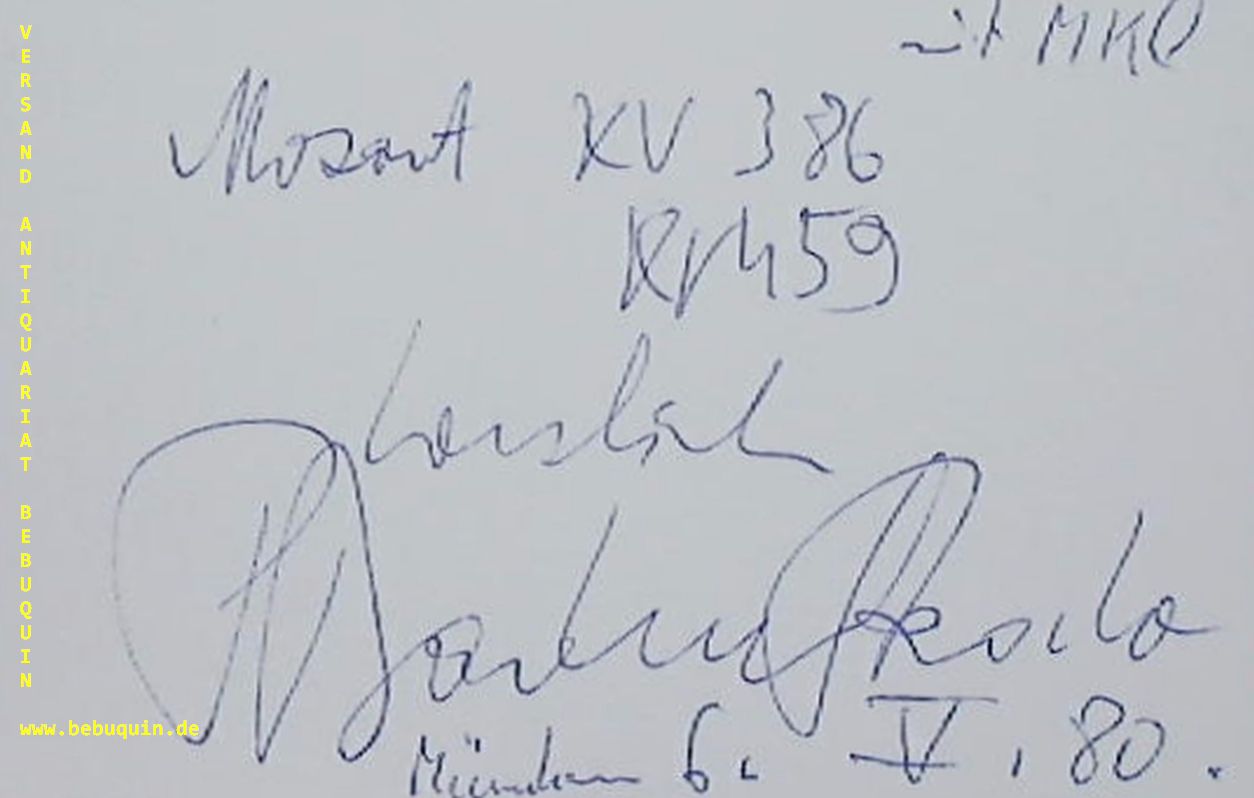 mit MKO
Mozart KV 386
KV 459
herzlich
Paul Badura-Skoda
München 6. V. 80.
VERSAND ANTIQUARIAT BEBUQUIN
www.bebuquin.de